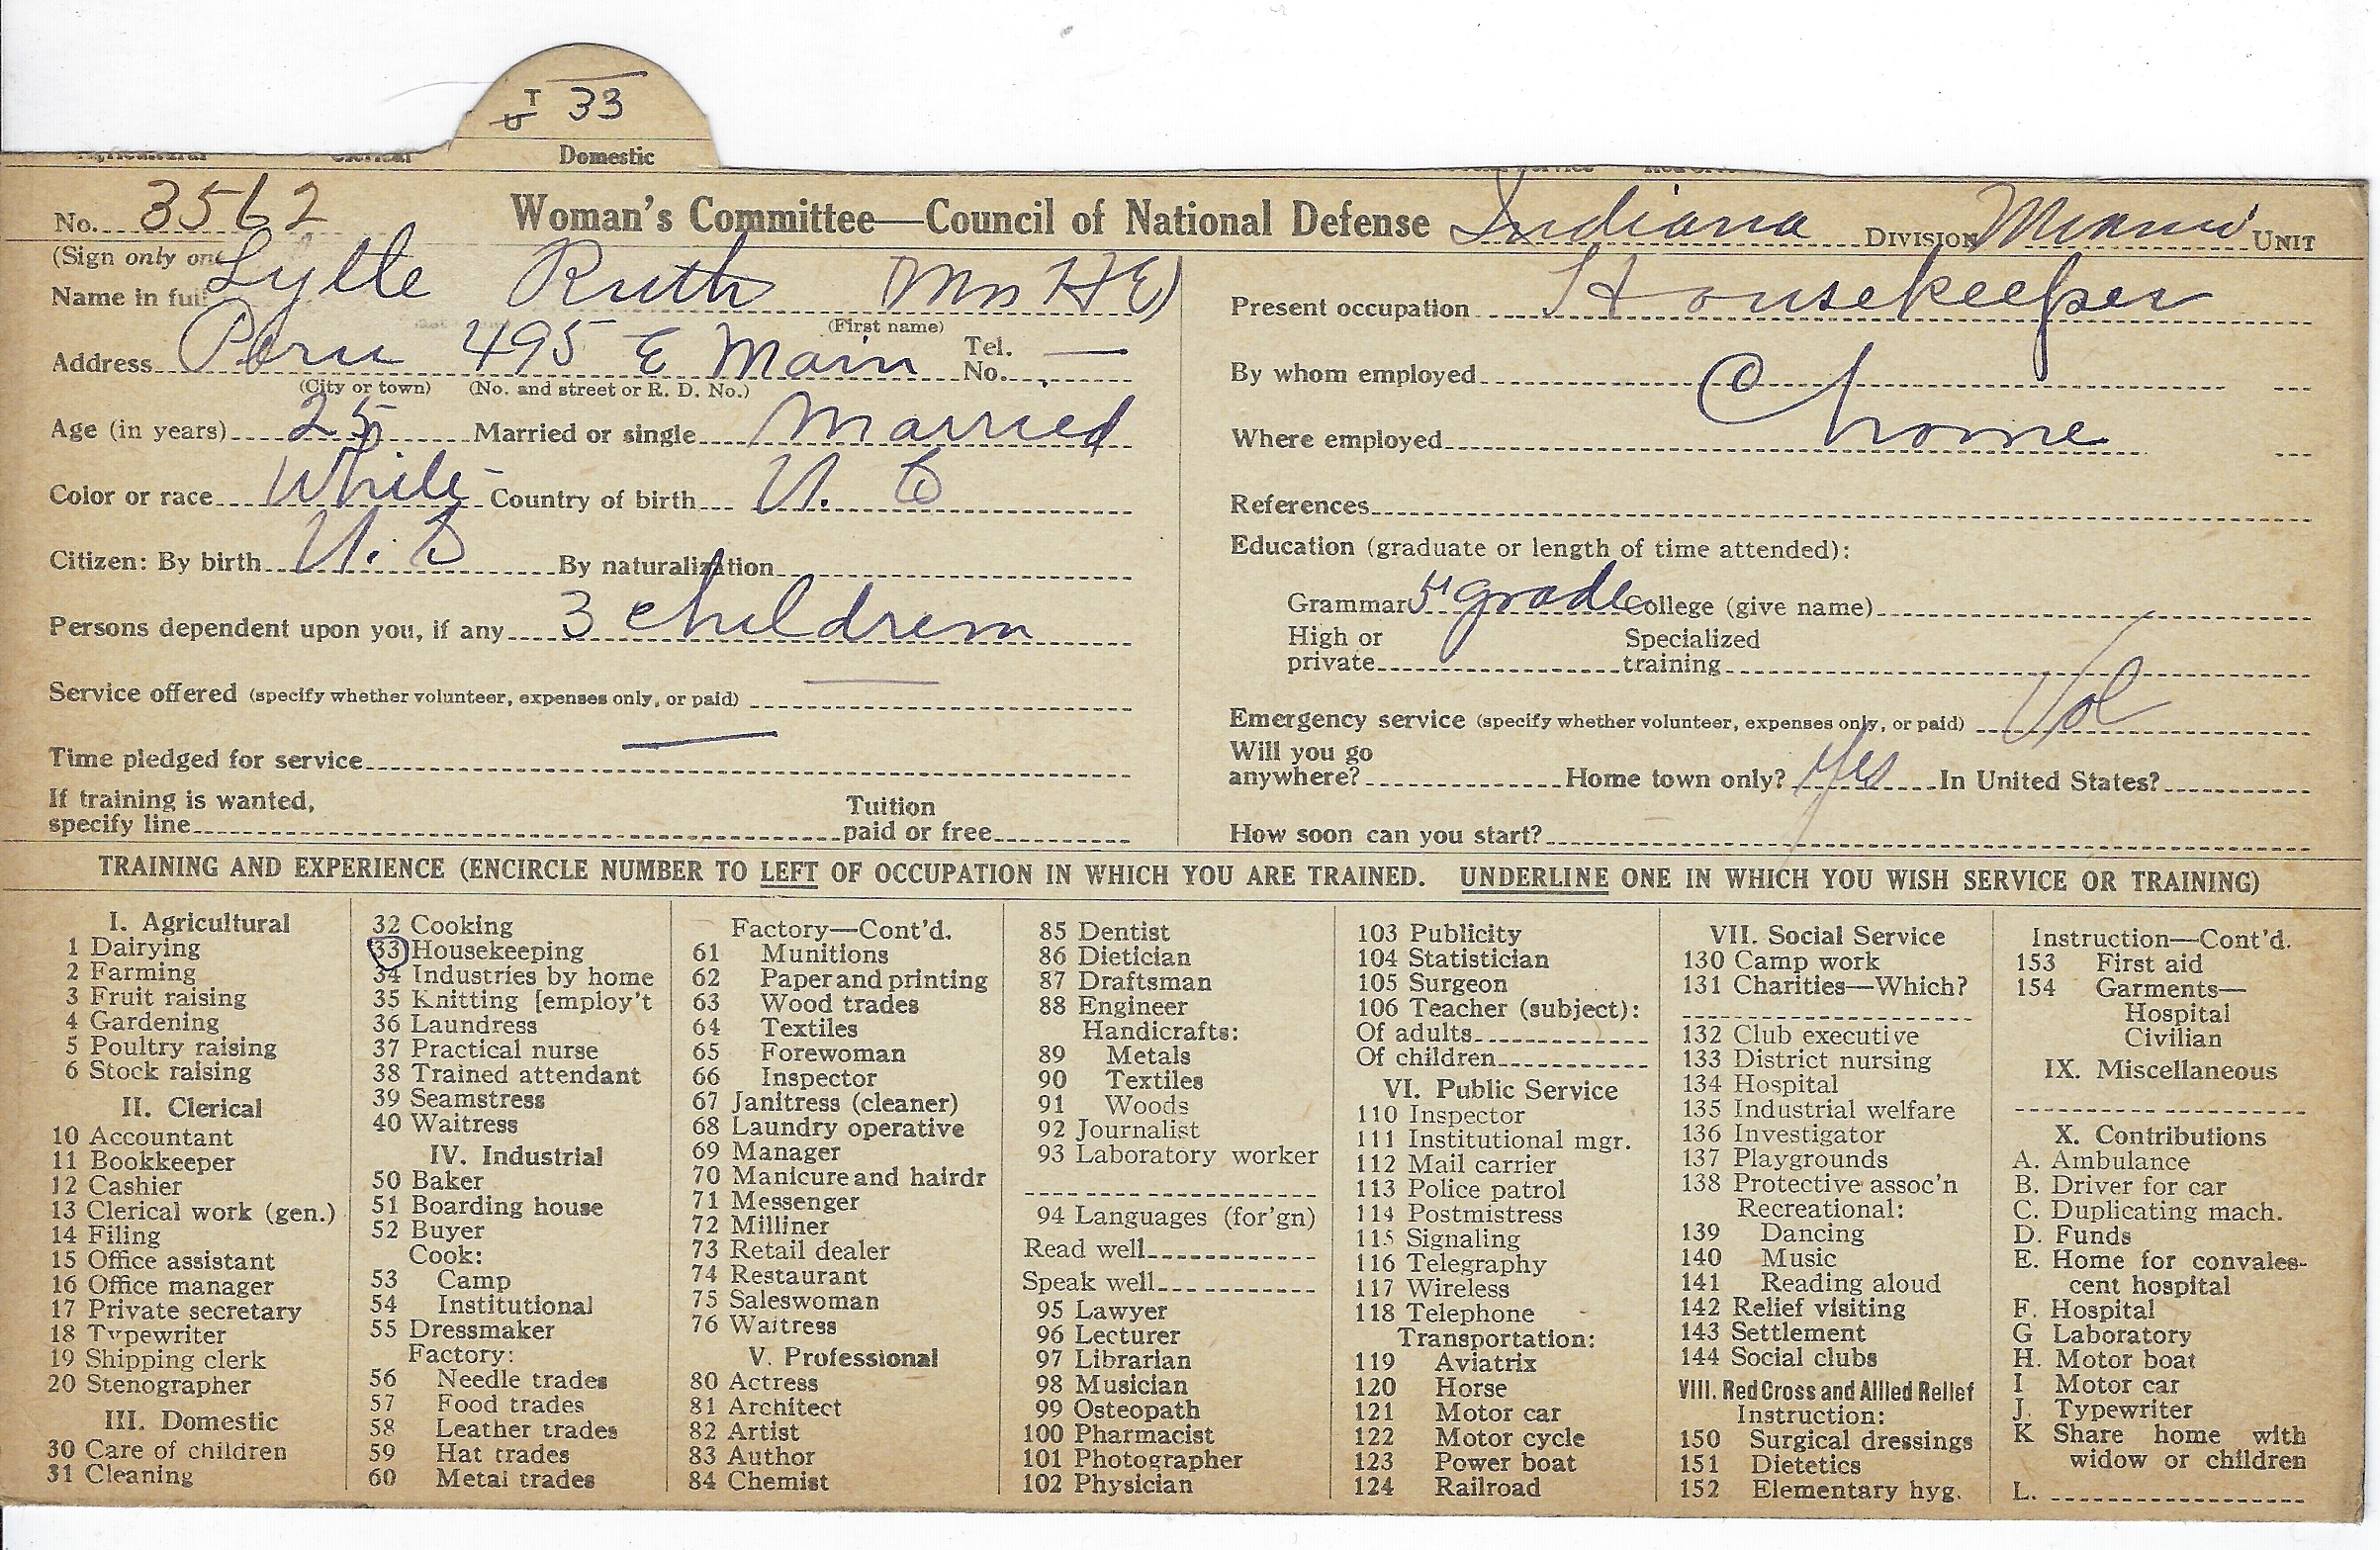 T 33
U
Domestic
No. 3562 Woman's Committee—Council of National Defense Indiana DIVISION Miami UNIT
(Sign only one
Name in full Lytle Ruth (Mrs H E)
(First name)
Address Peru 495 E Main Tel. No. —
(City or town) (No. and street or R. D. No.)
Age (in years) 25 Married or single Married
Color or race White Country of birth U. S
Citizen: By birth U. S By naturalization
Persons dependent upon you, if any 3 children
Service offered (specify whether volunteer, expenses only, or paid) —
Time pledged for service —
If training is wanted,
specify line Tuition paid or free
Present occupation Housekeeper
By whom employed @
Where employed home
References
Education (graduate or length of time attended):
Grammar 5" grade College (give name)
High or private Specialized training
Emergency service (specify whether volunteer, expenses only, or paid) Vol
Will you go
anywhere? Home town only? Yes In United States?
How soon can you start?
TRAINING AND EXPERIENCE (ENCIRCLE NUMBER TO LEFT OF OCCUPATION IN WHICH YOU ARE TRAINED. UNDERLINE ONE IN WHICH YOU WISH SERVICE OR TRAINING)
I. Agricultural
1 Dairying
2 Farming
3 Fruit raising
4 Gardening
5 Poultry raising
6 Stock raising
II. Clerical
10 Accountant
11 Bookkeeper
12 Cashier
13 Clerical work (gen.)
14 Filing
15 Office assistant
16 Office manager
17 Private secretary
18 Typewriter
19 Shipping clerk
20 Stenographer
III. Domestic
30 Care of children
31 Cleaning
32 Cooking
33 Housekeeping
34 Industries by home
35 Knitting [employ't
36 Laundress
37 Practical nurse
38 Trained attendant
39 Seamstress
40 Waitress
IV. Industrial
50 Baker
51 Boarding house
52 Buyer
Cook:
53 Camp
54 Institutional
55 Dressmaker
Factory:
56 Needle trades
57 Food trades
58 Leather trades
59 Hat trades
60 Metal trades
Factory—Cont'd.
61 Munitions
62 Paper and printing
63 Wood trades
64 Textiles
65 Forewoman
66 Inspector
67 Janitress (cleaner)
68 Laundry operative
69 Manager
70 Manicure and hairdr
71 Messenger
72 Milliner
73 Retail dealer
74 Restaurant
75 Saleswoman
76 Waitress
V. Professional
80 Actress
81 Architect
82 Artist
83 Author
84 Chemist
85 Dentist
86 Dietician
87 Draftsman
88 Engineer
Handicrafts:
89 Metals
90 Textiles
91 Woods
92 Journalist
93 Laboratory worker
94 Languages (for'gn)
Read well
Speak well
95 Lawyer
96 Lecturer
97 Librarian
98 Musician
99 Osteopath
100 Pharmacist
101 Photographer
102 Physician
103 Publicity
104 Statistician
105 Surgeon
106 Teacher (subject):
Of adults
Of children
VI. Public Service
110 Inspector
111 Institutional mgr.
112 Mail carrier
113 Police patrol
114 Postmistress
115 Signaling
116 Telegraphy
117 Wireless
118 Telephone
Transportation:
119 Aviatrix
120 Horse
121 Motor car
122 Motor cycle
123 Power boat
124 Railroad
VII. Social Service
130 Camp work
131 Charities—Which?
132 Club executive
133 District nursing
134 Hospital
135 Industrial welfare
136 Investigator
137 Playgrounds
138 Protective assoc'n
Recreational:
139 Dancing
140 Music
141 Reading aloud
142 Relief visiting
143 Settlement
144 Social clubs
VIII. Red Cross and Allied Relief
Instruction:
150 Surgical dressings
151 Dietetics
152 Elementary hyg.
Instruction—Cont'd.
153 First aid
154 Garments—
Hospital
Civilian
IX. Miscellaneous
X. Contributions
A. Ambulance
B. Driver for car
C. Duplicating mach.
D. Funds
E. Home for convales-
cent hospital
F. Hospital
G Laboratory
H. Motor boat
I Motor car
J. Typewriter
K Share home with
widow or children
L.